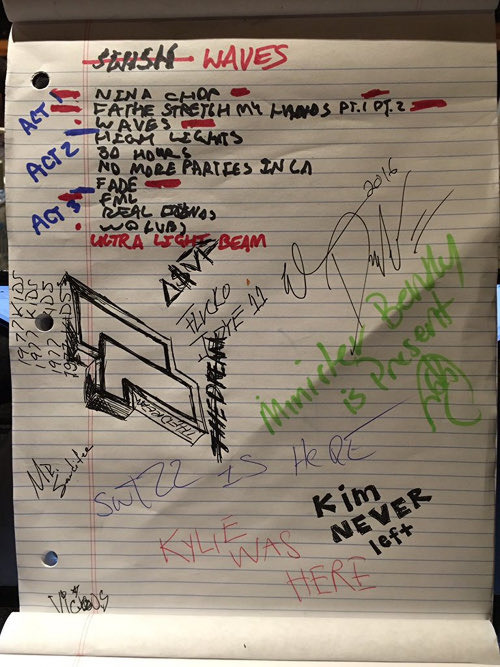 SWISH WAVES
ACT 1
NINA CHOP
FATHE STRETCH MY HANDS PT.1 PT.2
WAVES
ACT 2
HIGH LIGHTS
30 HOURS
NO MORE PARTIES IN LA
FADE
ACT 3
FML
REAL FRIENDS
WOLVES
ULTRA LIGHT BEAM
2016
1977 KIDS
1977 KIDS
1977 KIDS
1977 KIDS
THEDREAM
THEDREAM
Miniister Bently
is Present
Mr.
SWIZZ IS HERE
Kim
NEVER
left
KYLIE
WAS
HERE
Vicious